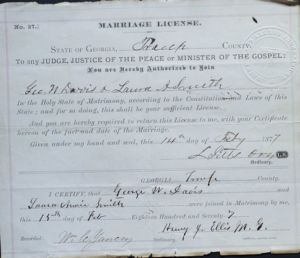 No. 37.
MARRIAGE LICENSE.
STATE OF GEORGIA, Troup COUNTY:
To any JUDGE, JUSTICE OF THE PEACE or MINISTER OF THE GOSPEL:
You are Hereby Authorized to Join
Geo. W Davis & Laura A Smith
in the Holy State of Matrimony, according to the Constitution and Laws of this
State; and for so doing, this shall be your sufficient License.
And you are hereby required to return this License to me, with your Certificate
hereon of the fact and date of the Marriage.
Given under my hand and seal, this 14th day of Feby 1877
Ordinary.
Troup County.
I CERTIFY, that George W. Davis
and
Laura Smith were joined in Matrimony by me,
this 15th day of Feb Eighteen Hundred and Seventy 7
Recorded Henry J. Ellis M. G.